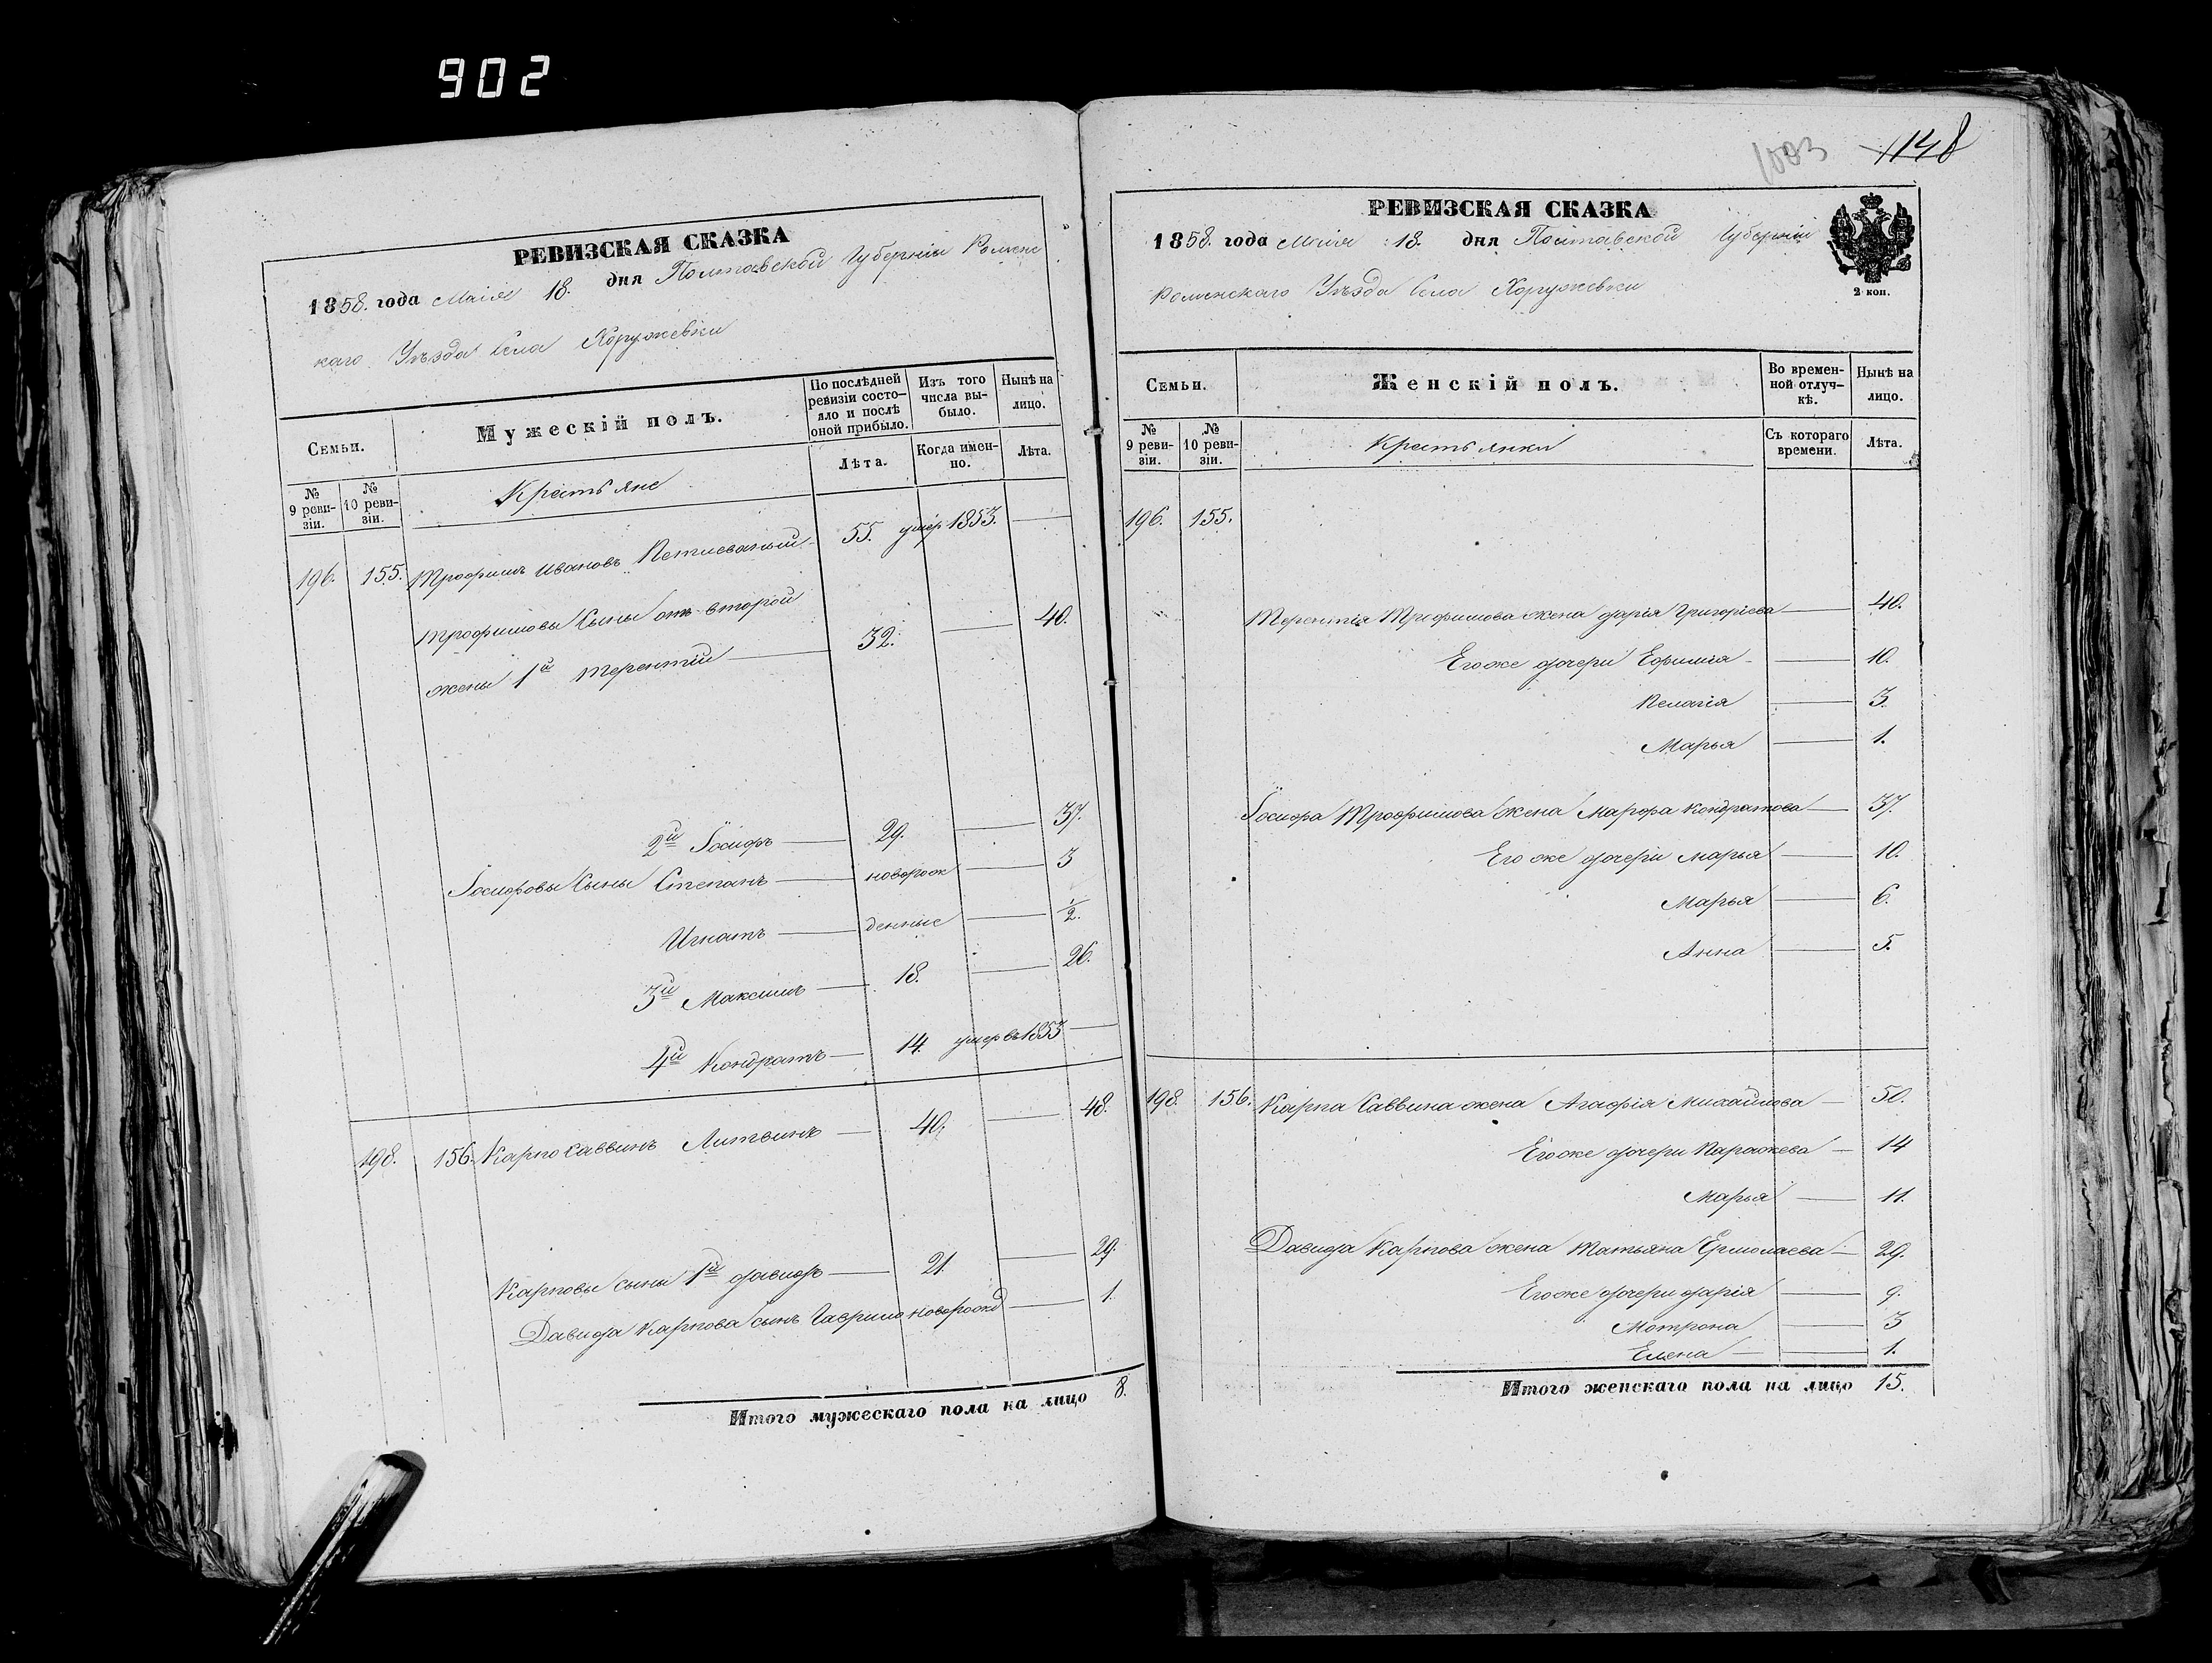 902
РЕВИЗСКАЯ СКАЗКА
1858. года Маія 18. дня Полтавской Губерніи Роменс
каго Уѣзда Села Хоружевки
Семьи.
Мужескій полъ.
По послѣдней ревизіи состо-
яло и послѣ оной прибыло.
Изъ того числа вы-
было.
Нынѣ на лицо.
№ 9 реви-
зіи.
№ 10 реви-
зіи.
Крестьяне
Лѣта.
Когда имен-
но.
Лѣта.
196. 155. Трофимъ Ивановъ 55. умер 1853. —
Трофимовы Сыны отъ второй
жены 1й Терентій — 32. — 40.
2й Іосифъ — 29. — 37.
Іосифовы Сыны Степанъ — новорож — 3
Игнатъ — денные — 1/2.
3й Максимъ — 18. — 26.
4й Кондратъ — 14. умер въ 1853 —
198. 156. Карпо Саввинъ Литвинъ — 40. — 48.
Карповы сыны 1й Давидъ — 21. — 29.
Давида Карпова сынъ Гаврило новорожд — 1.
Итого мужескаго пола на лицо 8.
1003 1148
РЕВИЗСКАЯ СКАЗКА
1858. года Маія 18. дня Полтавской Губерніи
Роменскаго Уѣзда Села Хоружевки
2 коп.
Семьи.
Женскій полъ.
Во времен-
ной отлуч-
кѣ.
Нынѣ на лицо.
№ 9 реви-
зіи.
№ 10 реви-
зіи.
Крестьянки
Съ котораго времени.
Лѣта.
196. 155.
Терентія Трофимова жена Дарія Григоріева — 40.
Его же дочери Ефимія — 10.
Пелагія — 3.
Марья — 1.
Іосифа Трофимова жена Марфа Кондратова — 37.
Его же дочери Марья — 10.
Марья — 6.
Анна — 5.
198. 156. Карпа Саввина жена Агафія Михайлова — 50.
Его же дочери Параскева — 14
Марья — 11.
Давида Карпова жена Татьяна Ермолаева — 29.
Его же дочери Дарія — 9.
Мотрона — 3
Елена — 1.
Итого женскаго пола на лицо 15.